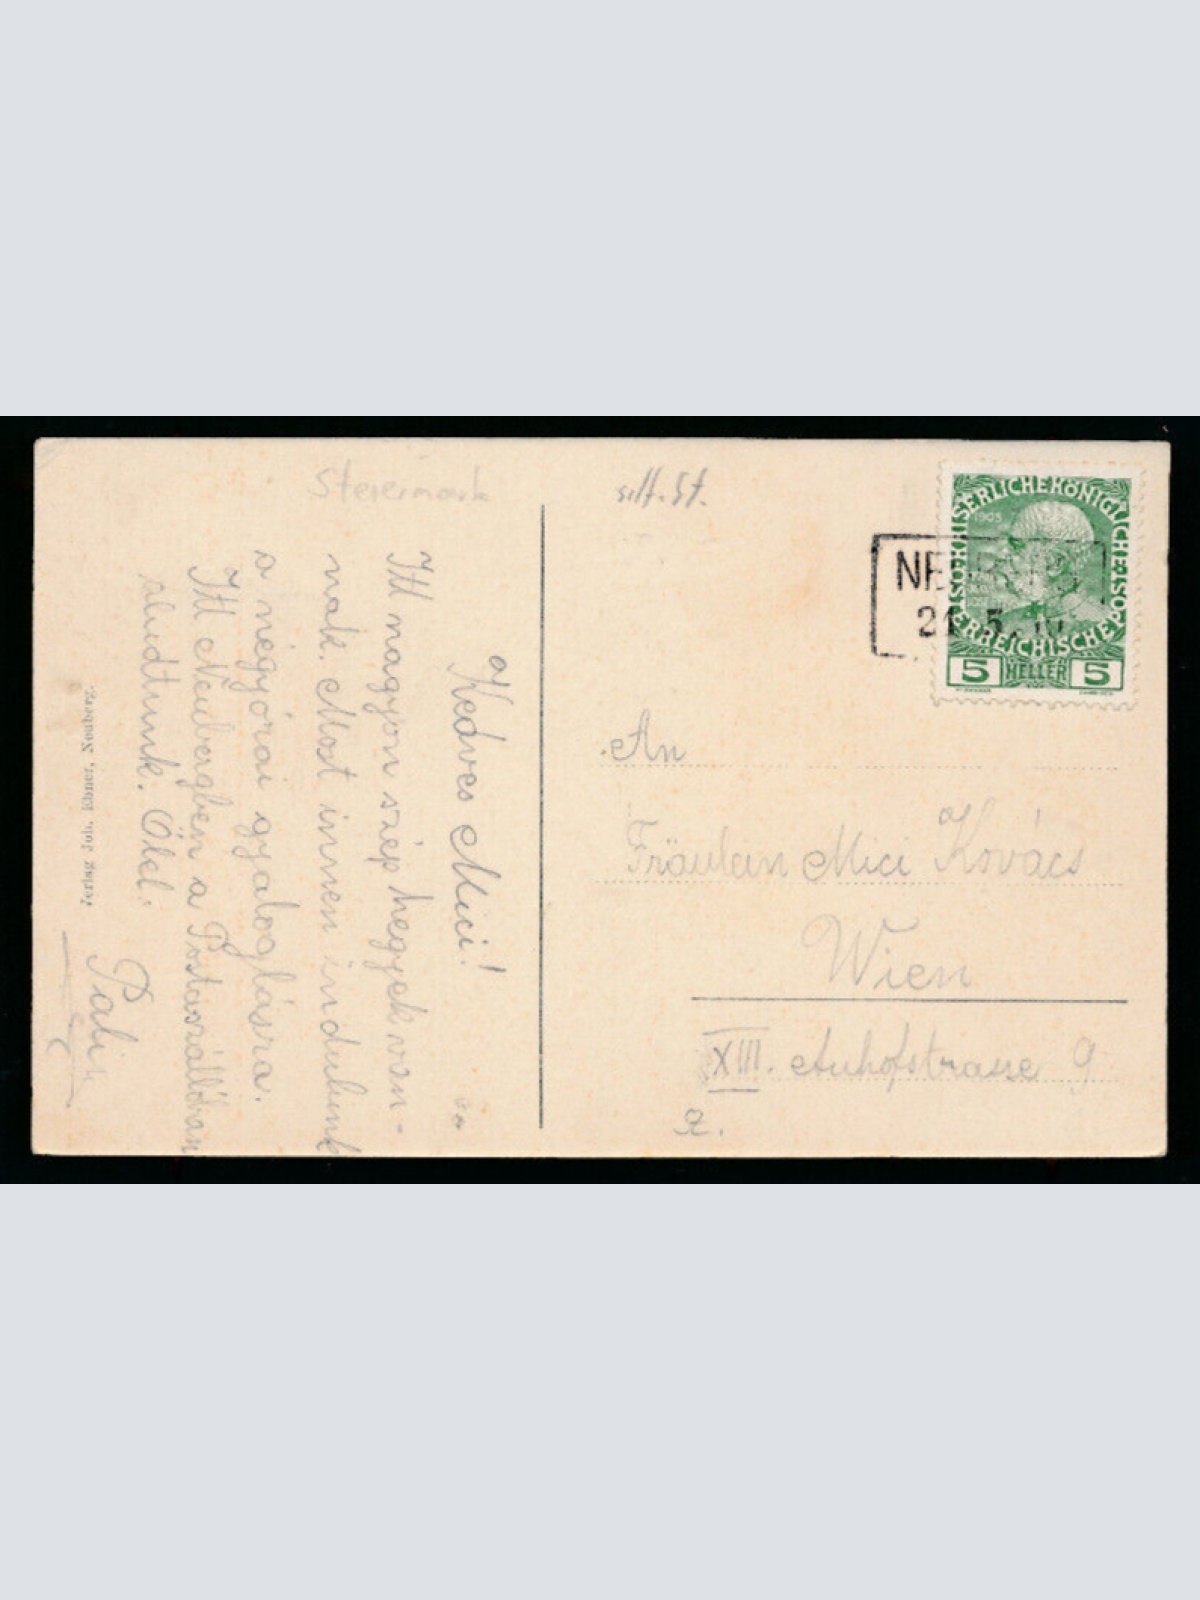 Steiermark
Kedves Mici!
Itt nagyon szép hegyek van-
nak. Most innen indulunk
a négyórai gyaloglásra.
Itt Neubergben a Postaszállóban
aludtunk. Ölel:
Pali
Verlag Joh. Ebner, Neuberg.
An
Fräulein Mici Kovács
Wien
XIII. Auhofstrasse 9
ÖSTERREICHISCHE POST KAISERLICHE KÖNIGLICHE
1908
5 HELLER 5
21 5